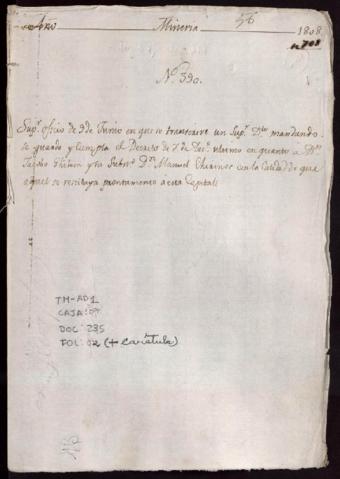 Año Mineria 56 1808
n.708
N.º 390.
Sup.r oficio de 9 de Junio en que se transcrive un Sup.r D.to mandando
se guarde y cumpla el Decreto de 7 de Dec.e ultimo en quanto a D.n
y su Subst.o D.n Manuel en la calidad de que
aquel se restituya prontamente à esta Capital
TM-AD1
CAJA: 07
DOC: 235
FOL: 02 (+ carátula)